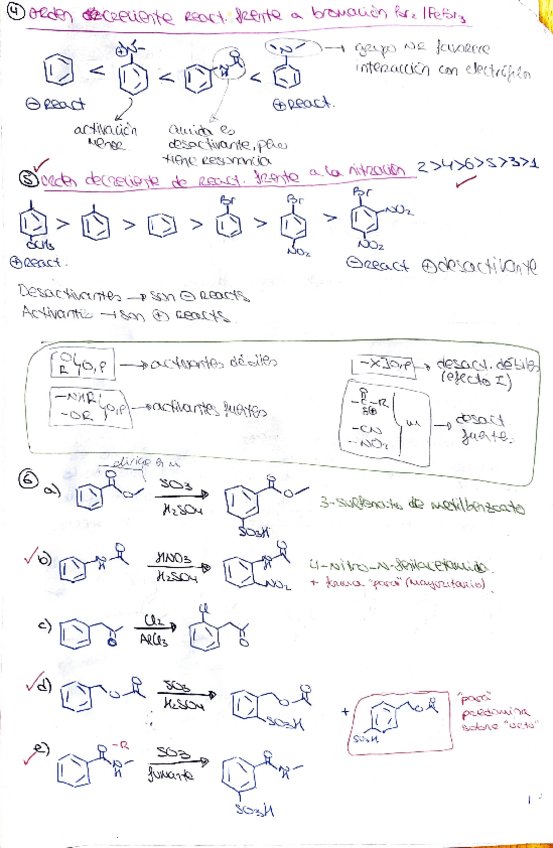 ④ Orden decreciente react. frente a bromación Br₂ / FeBr₃
grupo NR favorece
interacción con electrófilo
⊖ React
⊕ React.
activación
amida es
desactivante, pero
tiene resonancia
⑤ Orden decreciente de React. frente a la nitración 2>4>6>5>3>1
Br
Br
Br
NO₂
OCH₃
NO₂
NO₂
⊕ React.
⊖ React ⊕ desactivante
Desactivantes → son ⊖ reacts
Activante → son ⊕ reacts
R
O,P → activantes débiles
-X } O,P → desact. débiles
(efecto I)
-NHR
-OR
} O,P → activantes fuertes
-C-R
-CN
-NO₂
} m → desact
fuerte.
⑥
dirige a m
a)
SO₃
H₂SO₄
SO₃H
3-sulfonato de metilbenzoato
b)
HNO₃
H₂SO₄
NO₂
4-Nitro-N-fenilacetamida
+ forma "para" (mayoritario)
c)
Cl₂
AlCl₃
Cl
d)
SO₃
H₂SO₄
SO₃H
+
SO₃H
"para"
predomina
sobre "orto"
e)
-R
SO₃
fumante
SO₃H